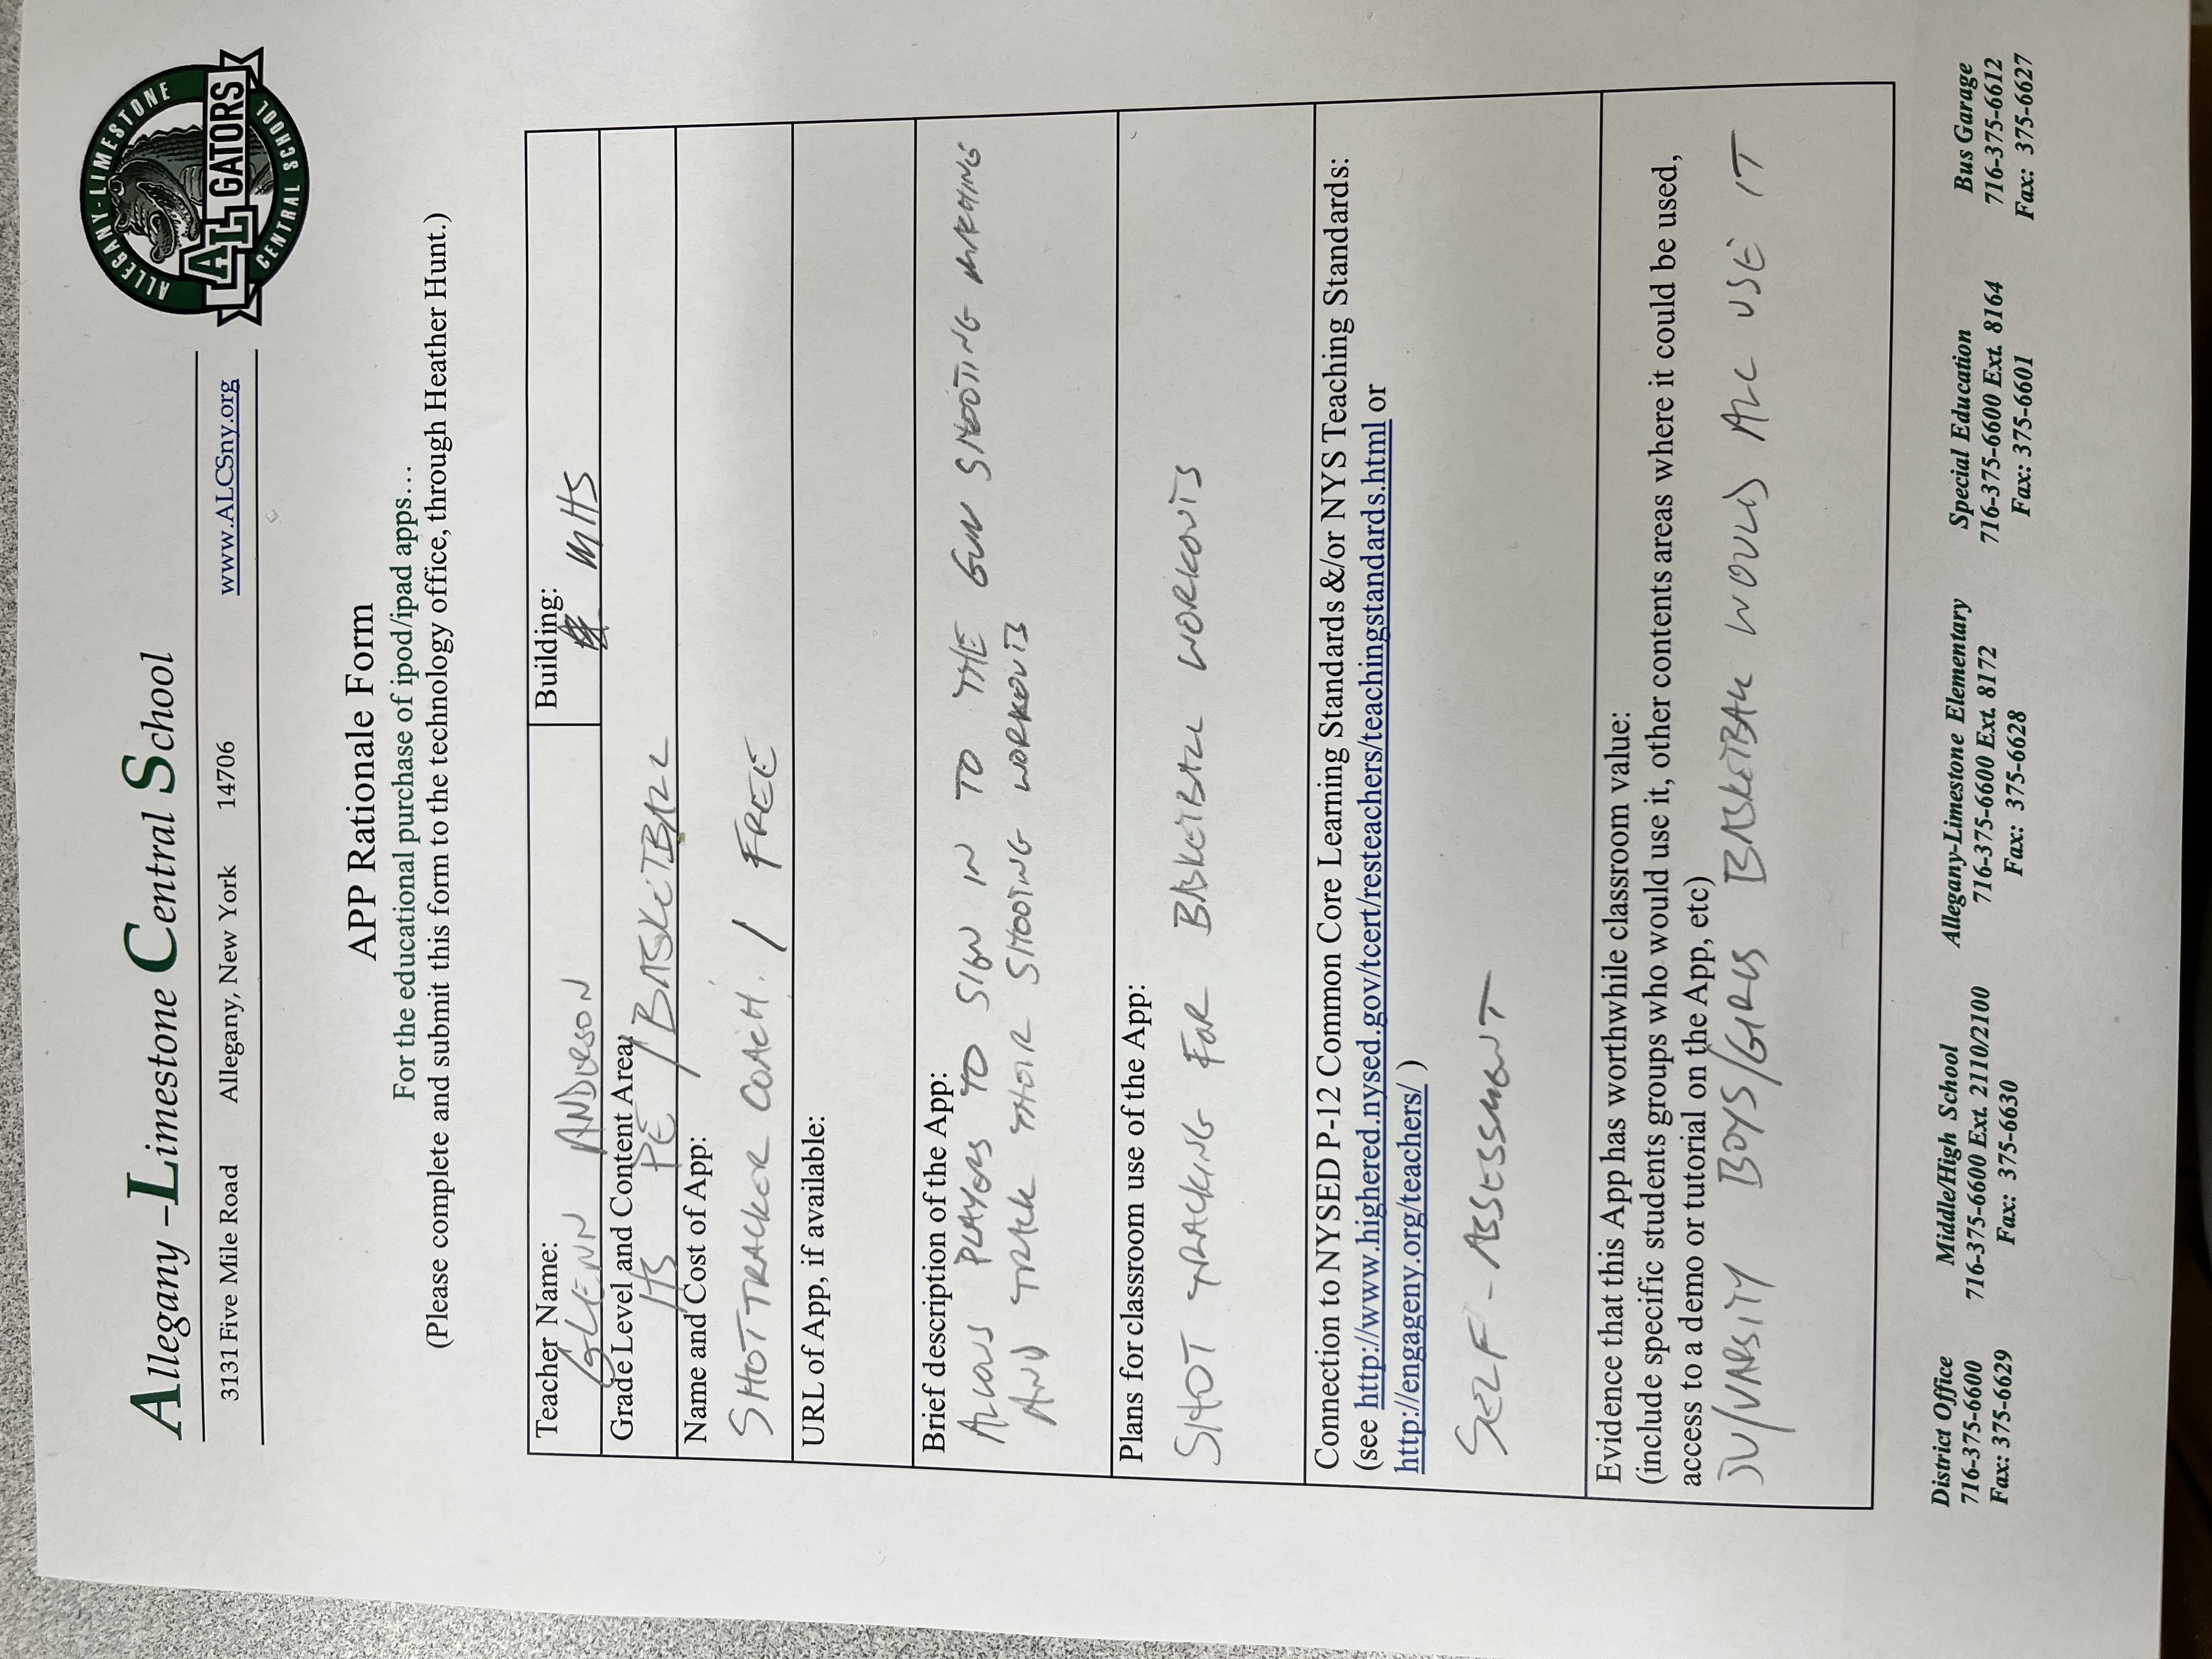 Allegany –Limestone Central School
3131 Five Mile Road Allegany, New York 14706 www.ALCSny.org
ALLEGANY-LIMESTONE
AL GATORS
CENTRAL SCHOOL
APP Rationale Form
For the educational purchase of ipod/ipad apps…
(Please complete and submit this form to the technology office, through Heather Hunt.)
Teacher Name:
GLENN ANDERSON
Building:
MHS
Grade Level and Content Area:
HS PE / BASKETBALL
Name and Cost of App:
SHOTTRACKER COACH. / FREE
URL of App, if available:
Brief description of the App:
ALLOWS PLAYERS TO SIGN IN TO THE GUN SHOOTING MACHINE
AND TRACK THEIR SHOOTING WORKOUTS
Plans for classroom use of the App:
SHOT TRACKING FOR BASKETBALL WORKOUTS
Connection to NYSED P-12 Common Core Learning Standards &/or NYS Teaching Standards:
(see http://www.highered.nysed.gov/tcert/resteachers/teachingstandards.html or
http://engageny.org/teachers/ )
SELF-ASSESSMENT
Evidence that this App has worthwhile classroom value:
(include specific students groups who would use it, other contents areas where it could be used,
access to a demo or tutorial on the App, etc)
JV/VARSITY BOYS/GIRLS BASKETBALL WOULD ALL USE IT
District Office
716-375-6600
Fax: 375-6629
Middle/High School
716-375-6600 Ext. 2110/2100
Fax: 375-6630
Allegany-Limestone Elementary
716-375-6600 Ext. 8172
Fax: 375-6628
Special Education
716-375-6600 Ext. 8164
Fax: 375-6601
Bus Garage
716-375-6612
Fax: 375-6627